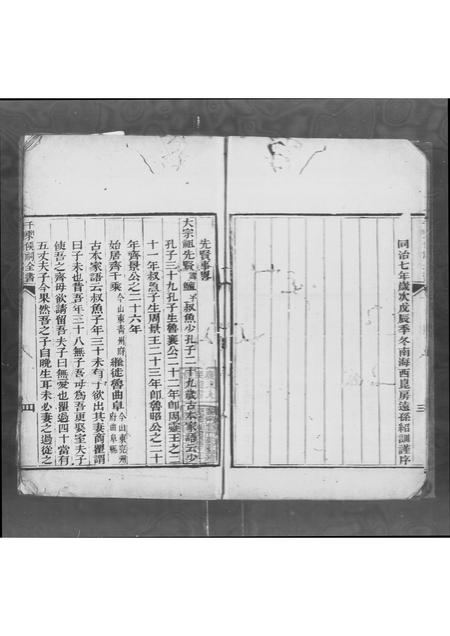 同治七年歲次戊辰季冬南海西崑房遠孫紹訓謹序
三
先賢事畧
大宗祖先賢諱鱣字叔魚少孔子二十九歲古本家語云少
孔子三十九孔子生魯襄公二十二年卽周靈王之二
十一年叔魚子生周景王二十三年卽魯昭公之二十
年齊景公之二十六年
始居齊千乘今山東青州府繼徙魯曲阜今山東兗州府曲阜縣
古本家語云叔魚子年三十未有子欲出其妻商瞿謂
曰子未也昔吾年三十八無子吾母爲吾更娶室夫子
使吾之齊母欲請留吾夫子曰無憂也瞿過四十當有
五丈夫子今果然吾恐子自晚生耳未必妻之過從之
千乘侯祠全書
四